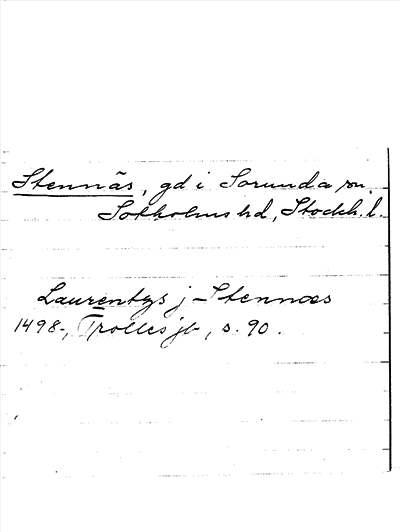 Stennäs, gd i Sorunda sn.
Sotholms hd, Stockh. l.
Laurentys j Stennæs
1498-, Trolles jb, s. 90.